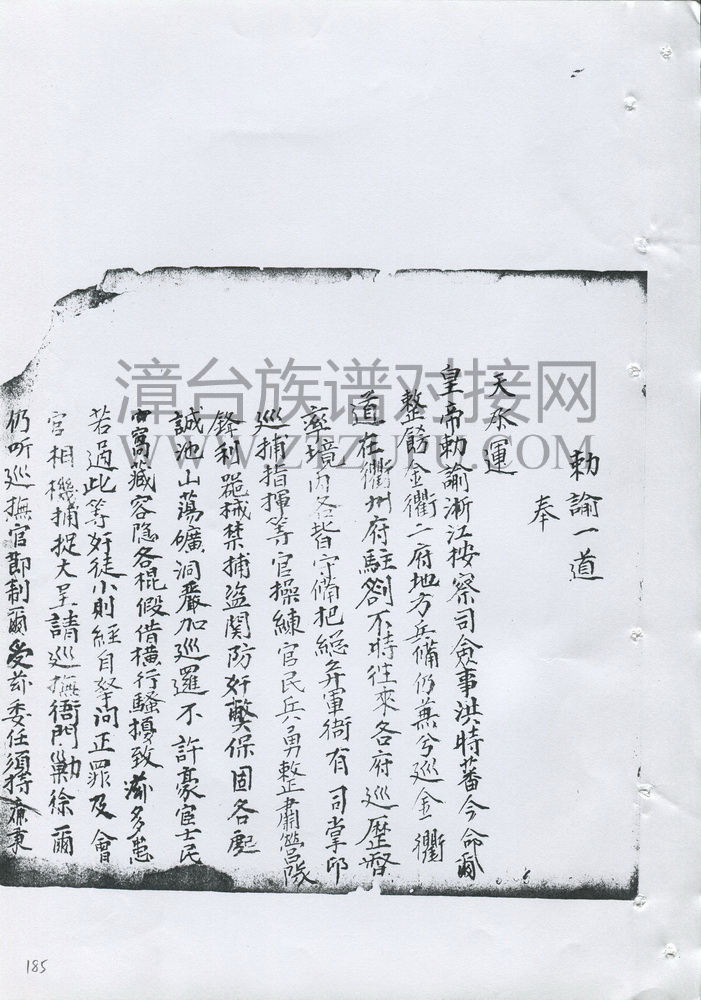 勅諭一道
奉
天承運
皇帝勅諭浙江桉察司僉事洪時蕃今命爾
整飭金衢二府地方兵備仍兼分巡金衢
道在衢州府駐劄不時往來各府巡歷督
率境内各皆守備把総弁軍衛有司掌印
巡捕指揮等官操練官民兵勇整肅營隊
鋒利器械禁捕盗関防奸弊保固各處
誠池山蕩礦洞嚴加巡邏不許豪宦士民
窩藏容隐各棍假借横行騷擾致添多患
若遇此等奸徒小則經自拏问正罪及會
官相機捕捉大呈請巡撫衙門勦徐爾
仍听巡撫官節制爾受茲委任須持廉秉
漳台族谱对接网
WWW.ZTZUPU.COM
185